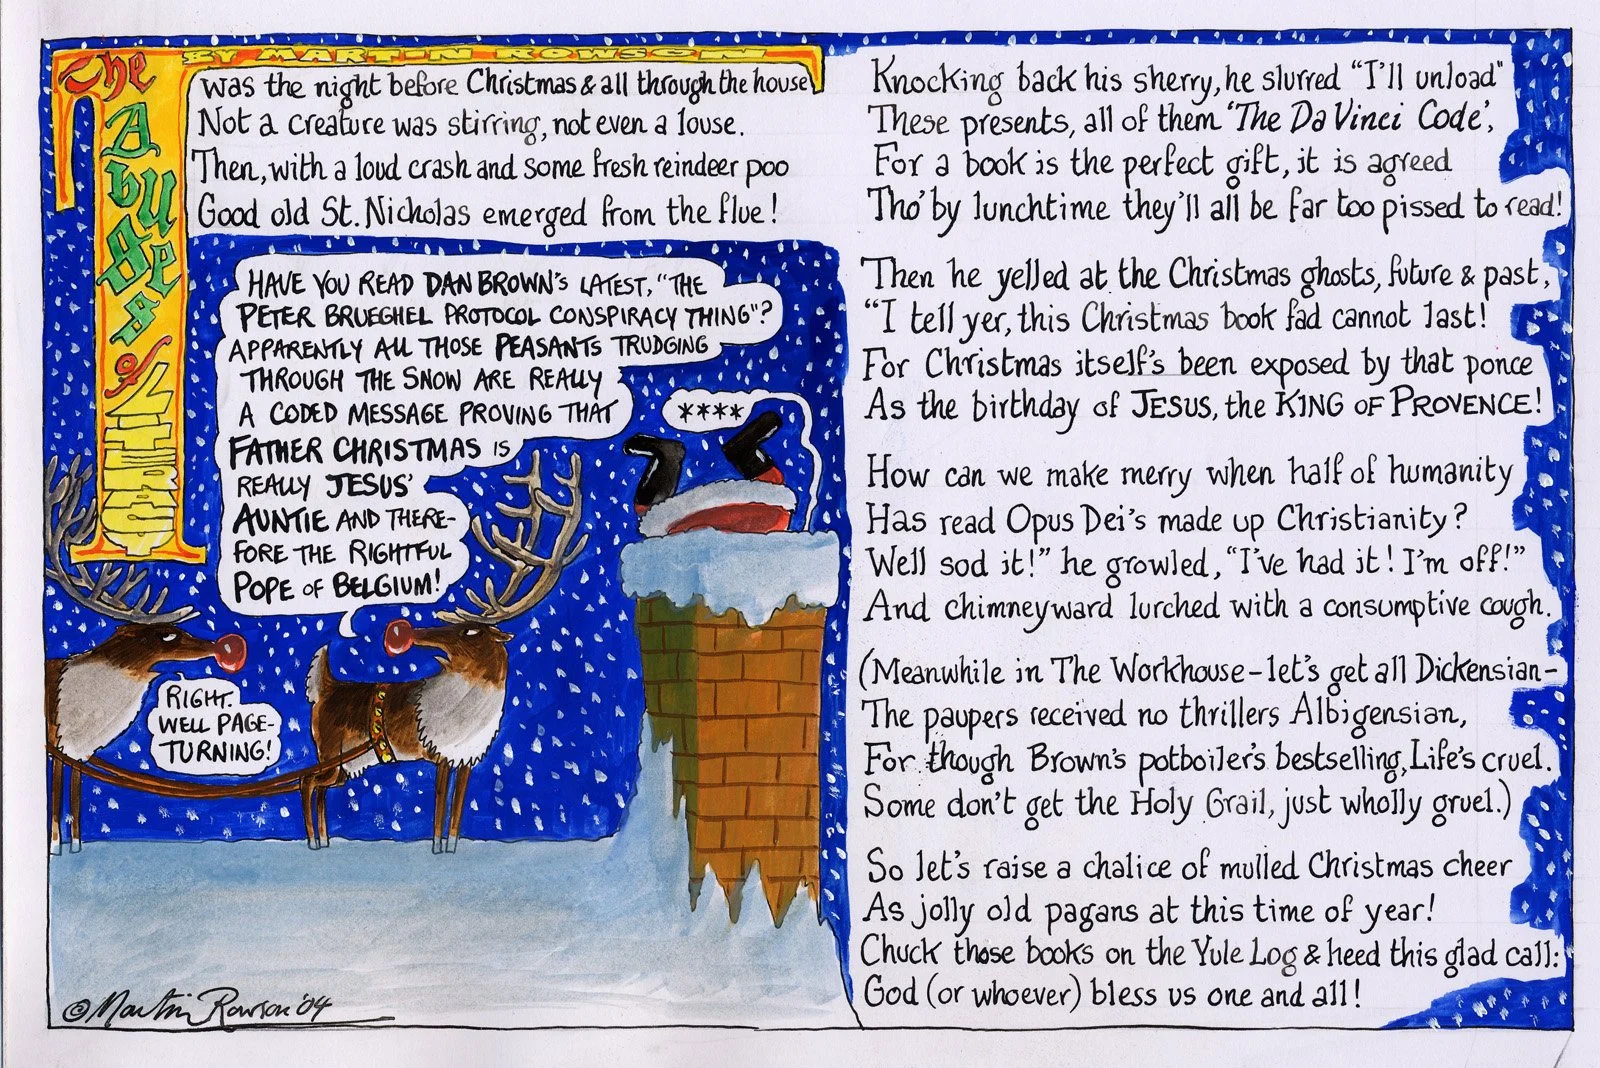 The Abuses of Literacy
BY MARTIN ROWSON
was the night before Christmas & all through the house
Not a creature was stirring, not even a louse.
Then, with a loud crash and some fresh reindeer poo
Good old St. Nicholas emerged from the flue!
HAVE YOU READ DAN BROWN'S LATEST, "THE
PETER BRUEGHEL PROTOCOL CONSPIRACY THING"?
APPARENTLY ALL THOSE PEASANTS TRUDGING
THROUGH THE SNOW ARE REALLY
A CODED MESSAGE PROVING THAT
FATHER CHRISTMAS IS
REALLY JESUS'
AUNTIE AND THERE-
FORE THE RIGHTFUL
POPE OF BELGIUM!
****
RIGHT.
WELL PAGE-
TURNING!
© Martin Rowson '04
Knocking back his sherry, he slurred "I'll unload"
These presents, all of them 'The Da Vinci Code',
For a book is the perfect gift, it is agreed
Tho' by lunchtime they'll all be far too pissed to read!
Then he yelled at the Christmas ghosts, future & past,
"I tell yer, this Christmas book fad cannot last!
For Christmas itself's been exposed by that ponce
As the birthday of JESUS, the KING OF PROVENCE!
How can we make merry when half of humanity
Has read Opus Dei's made up Christianity?
Well sod it!" he growled, "I've had it! I'm off!"
And chimneyward lurched with a consumptive cough.
(Meanwhile in The Workhouse - let's get all Dickensian -
The paupers received no thrillers Albigensian,
For though Brown's potboiler's bestselling, Life's cruel.
Some don't get the Holy Grail, just wholly gruel.)
So let's raise a chalice of mulled Christmas cheer
As jolly old pagans at this time of year!
Chuck those books on the Yule Log & heed this glad call:
God (or whoever) bless us one and all!